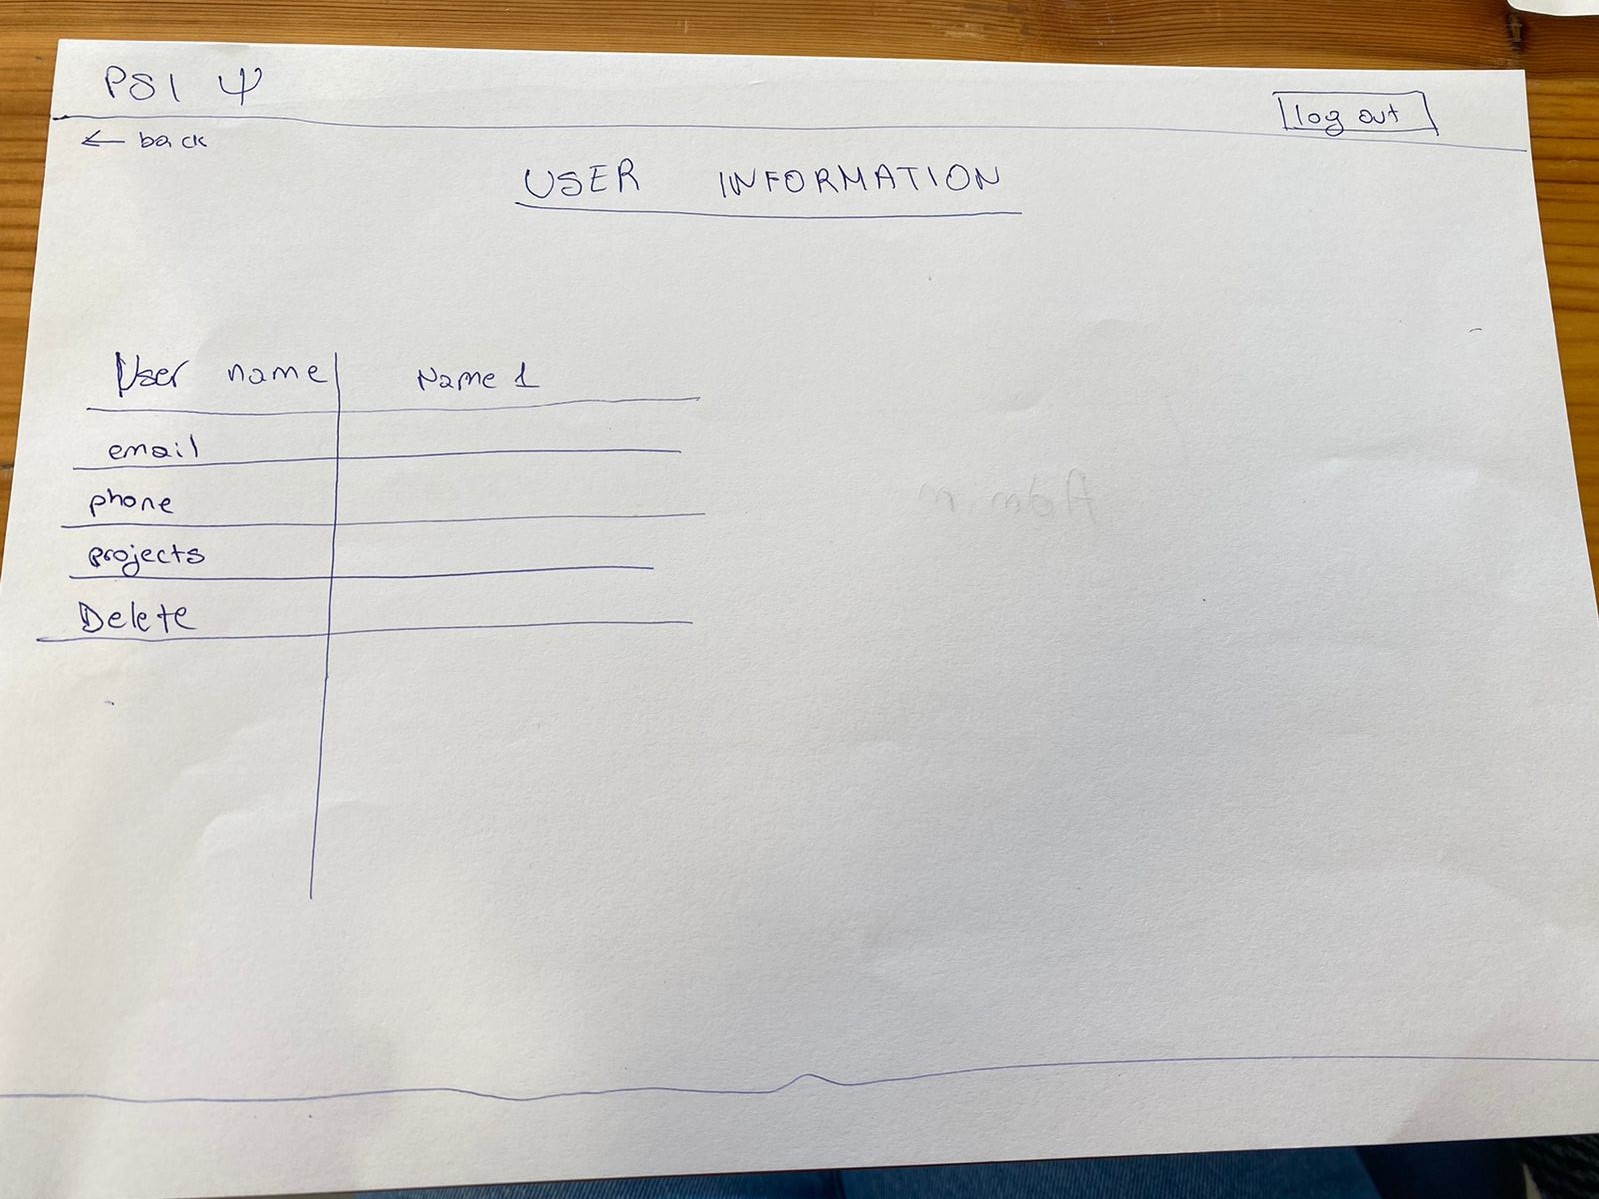 PSI Ψ
log out
← back
USER INFORMATION
User name Name 1
email
phone
projects
Delete
Admin